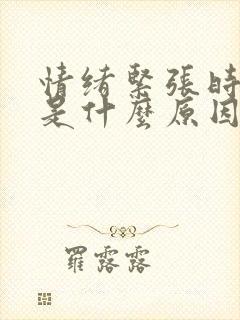 情绪緊張時
是什麼原因
羅露露